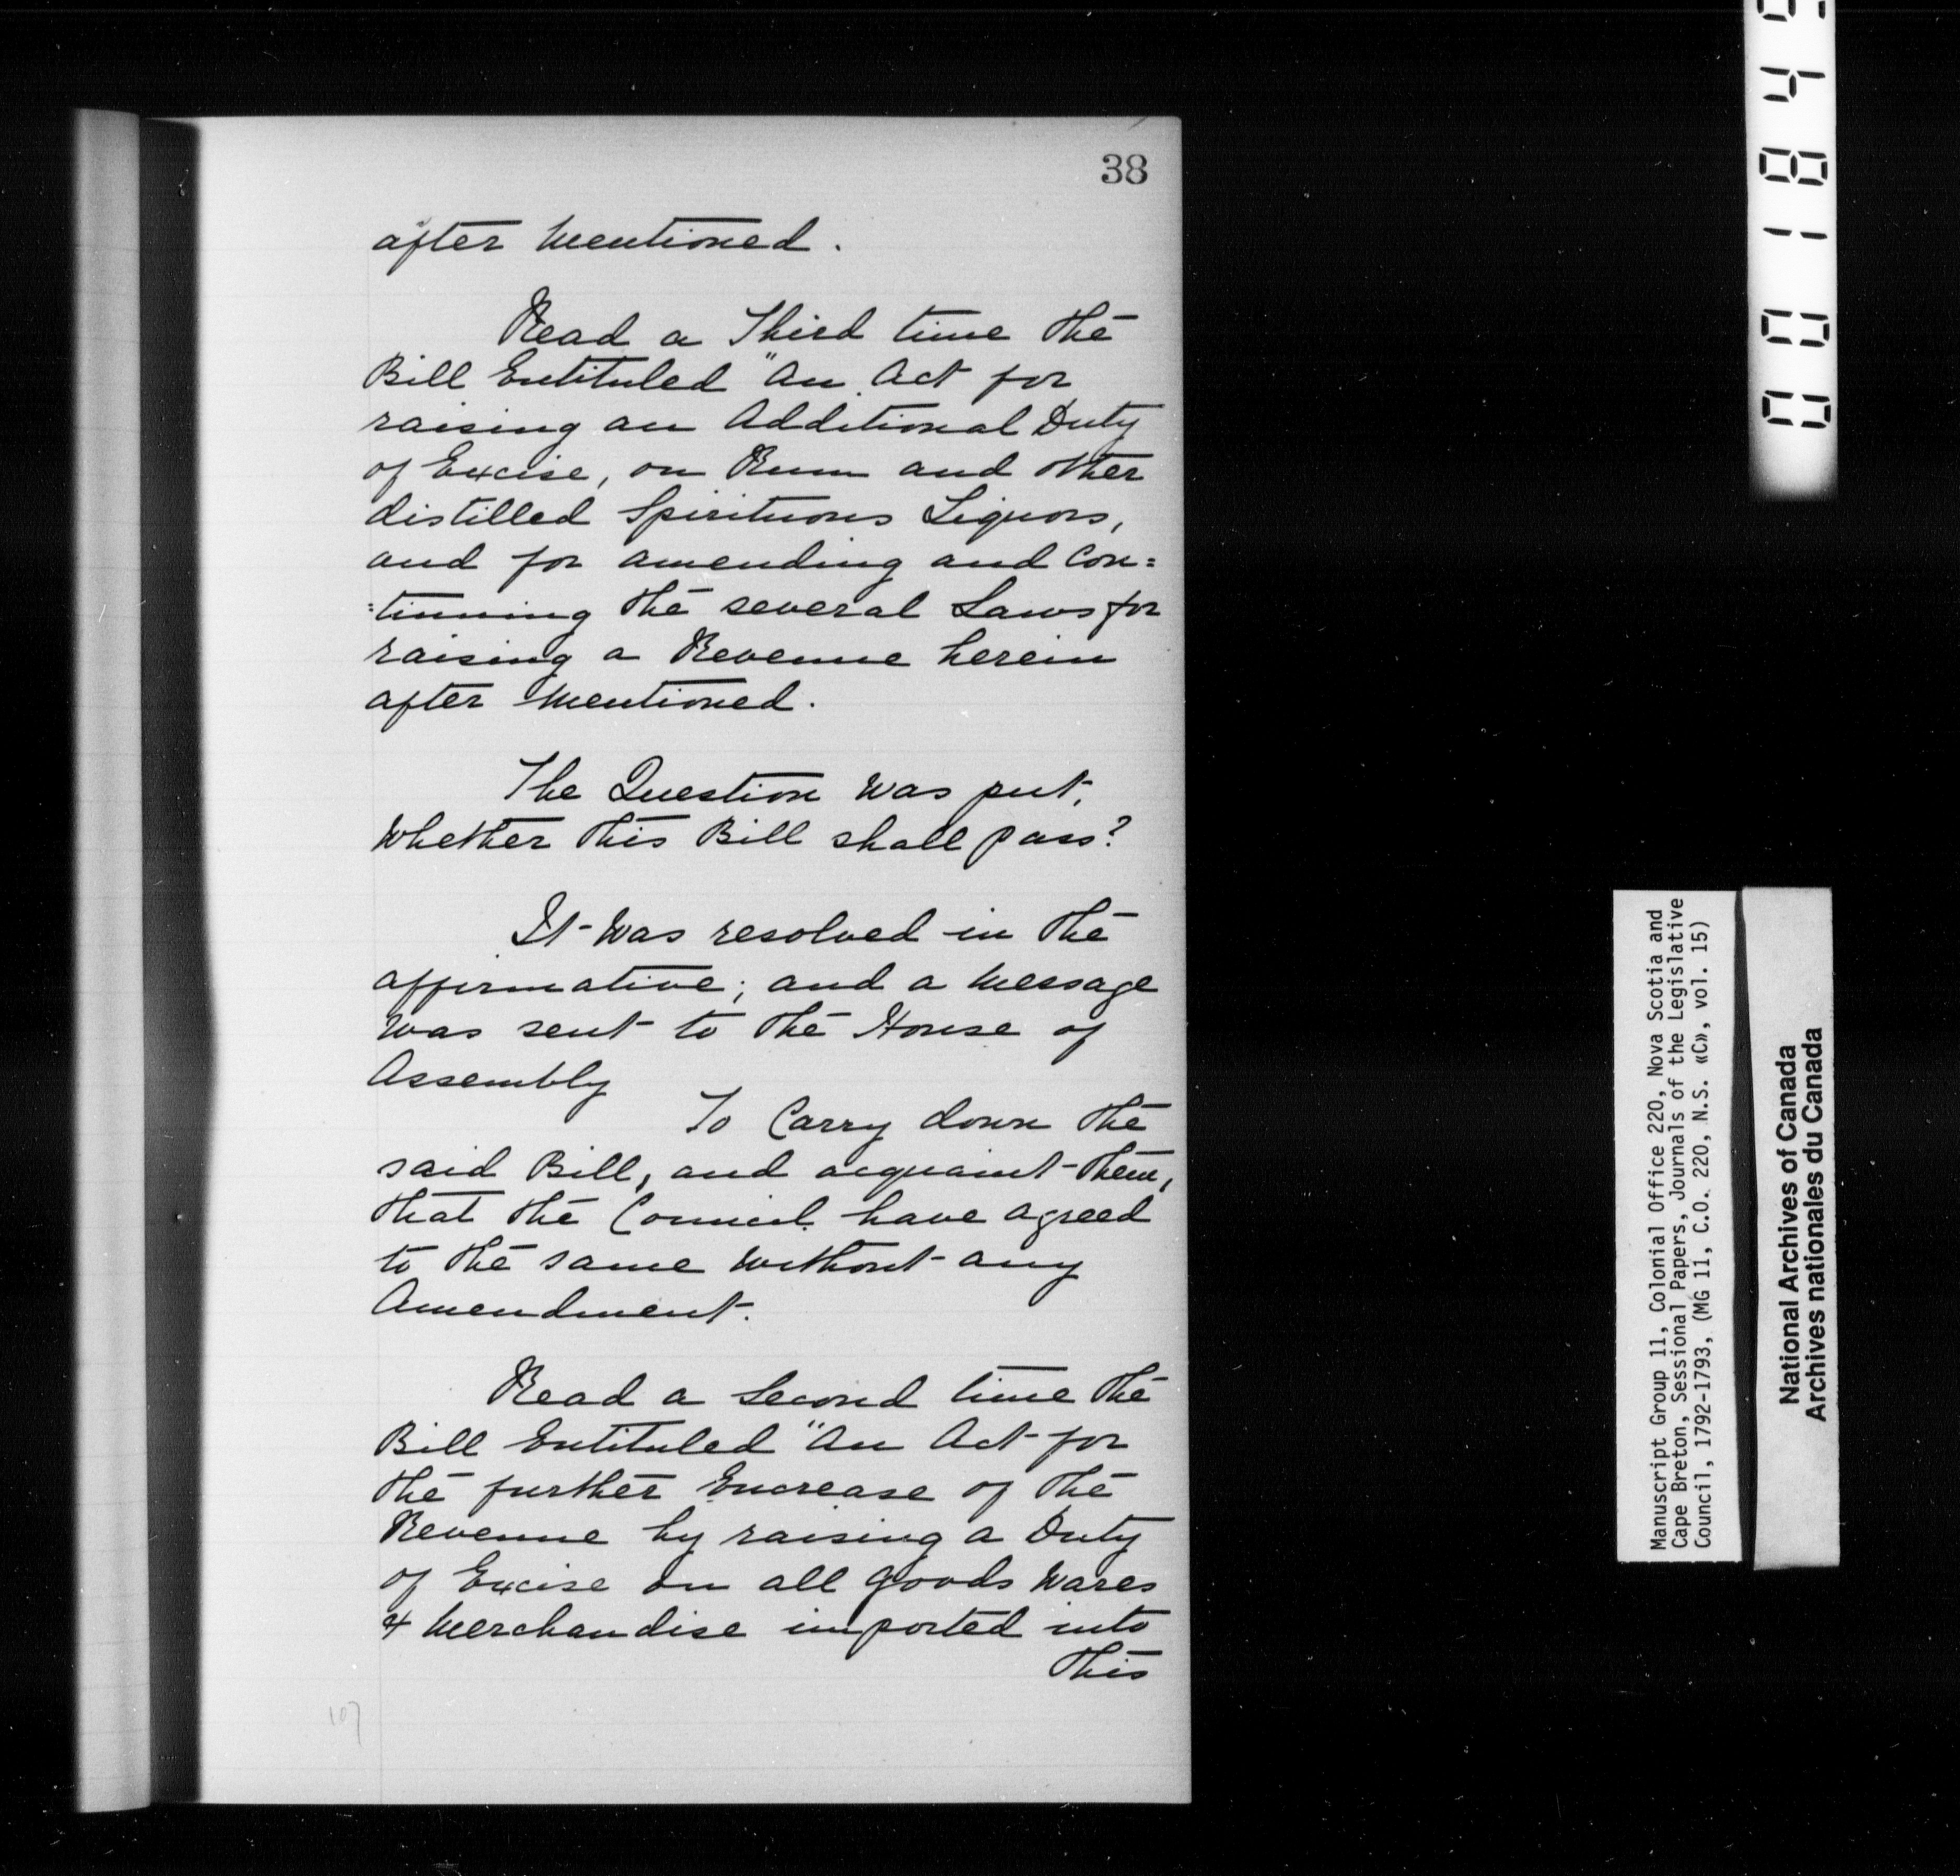 38
after mentioned.
Read a Third time the
Bill Entituled "An Act for
raising an Additional Duty
of Excise, on Rum and other
distilled Spirituous Liquors,
and for amending and Con=
=tinuing the several Laws for
raising a Revenue herein
after mentioned.
The Question was put,
Whether this Bill shall pass?
It was resolved in the
affirmative; and a Message
was sent to the House of
Assembly
To Carry down the
said Bill, and acquaint them,
that the Council have agreed
to the same without any
Amendment.
Read a Second time the
Bill Entituled "An Act for
the further Encrease of the
Revenue by raising a Duty
of Excise on all goods Wares
& Merchandise imported into
this
107
Manuscript Group 11, Colonial Office 220, Nova Scotia and
Cape Breton, Sessional Papers, Journals of the Legislative
Council, 1792-1793, (MG 11, C.O. 220, N.S. «C», vol. 15)
National Archives of Canada
Archives nationales du Canada
00184